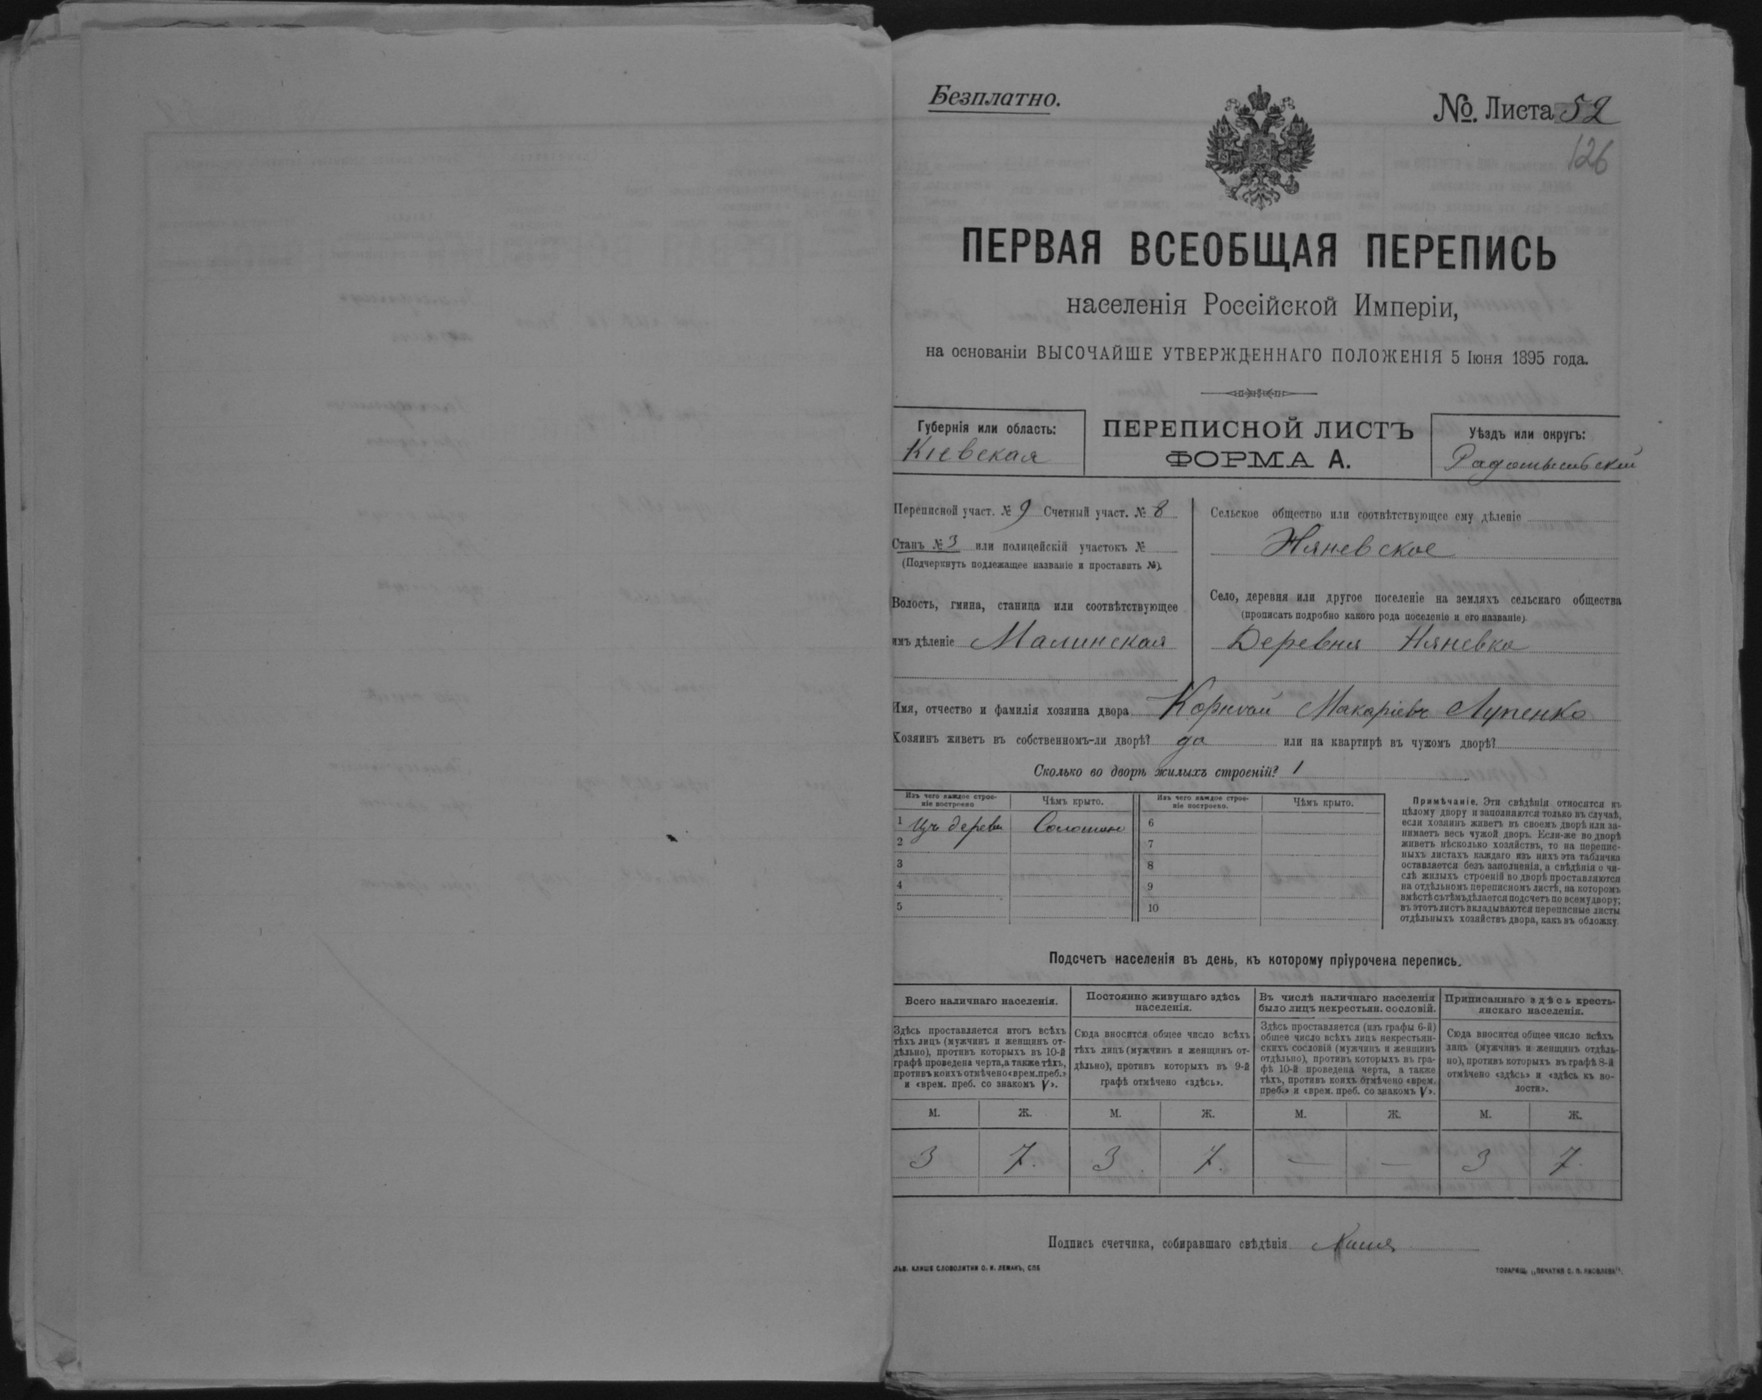 Безплатно.
№. Листа 52
126
ПЕРВАЯ ВСЕОБЩАЯ ПЕРЕПИСЬ
населенія Россійской Имперіи,
на основаніи ВЫСОЧАЙШЕ УТВЕРЖДЕННАГО ПОЛОЖЕНІЯ 5 Іюня 1895 года.
Губернія или область:
Кіевская
ПЕРЕПИСНОЙ ЛИСТЪ
ФОРМА А.
Уѣздъ или округъ:
Радомысльскій
Переписной участ. № 9 Счетный участ. № 8
Станъ № 3 или полицейскій участокъ №
(Подчеркнуть подлежащее названіе и проставить №).
Волость, гмина, станица или соотвѣтствующее
имъ дѣленіе Малинская
Сельское общество или соотвѣтствующее ему дѣленіе
Няневское
Село, деревня или другое поселеніе на земляхъ сельскаго общества
(прописать подробно какого рода поселеніе и его названіе)
Деревня Няневка
Имя, отчество и фамилія хозяина двора Макаріевъ Лупенко
Хозяинъ живетъ въ собственномъ-ли дворѣ? да или на квартирѣ въ чужомъ дворѣ?
Сколько во дворѣ жилыхъ строеній? 1
Изъ чего каждое строе-
ніе построено
Чѣмъ крыто.
Изъ чего каждое строе-
ніе построено.
Чѣмъ крыто.
1 Изъ дерева Соломою 6
2 7
3 8
4 9
5 10
Примѣчаніе. Эти свѣдѣнія относятся къ
цѣлому двору и заполняются только въ случаѣ,
если хозяинъ живетъ въ своемъ дворѣ или за-
нимаетъ весь чужой дворъ. Если-же во дворѣ
живетъ нѣсколько хозяйствъ, то на перепис-
ныхъ листахъ каждаго изъ нихъ эта табличка
оставляется безъ заполненія, а свѣдѣнія о чи-
слѣ жилыхъ строеній во дворѣ проставляются
на отдѣльномъ переписномъ листѣ, на которомъ
вмѣстѣ съ тѣмъ дѣлается подсчетъ по всему двору;
въ этотъ листъ вкладываются переписные листы
отдѣльныхъ хозяйствъ двора, какъ въ обложку.
Подсчетъ населенія въ день, къ которому пріурочена перепись.
Всего наличнаго населенія.
Здѣсь проставляется итогъ всѣхъ
тѣхъ лицъ (мужчинъ и женщинъ от-
дѣльно), противъ которыхъ въ 10-й
графѣ проведена черта, а также тѣхъ,
противъ коихъ отмѣчено «врем. преб.»
и «врем. преб. со знакомъ V».
Постоянно живущаго здѣсь
населенія.
Сюда вносится общее число всѣхъ
тѣхъ лицъ (мужчинъ и женщинъ от-
дѣльно), противъ которыхъ въ 9-й
графѣ отмѣчено «здѣсь».
Въ числѣ наличнаго населенія
было лицъ некрестьян. сословій.
Здѣсь проставляется (изъ графы 6-й)
общее число всѣхъ лицъ некрестьян-
скихъ сословій (мужчинъ и женщинъ
отдѣльно), противъ которыхъ въ гра-
фѣ 10-й проведена черта, а также
тѣхъ, противъ коихъ отмѣчено «врем.
преб.» и «врем. преб. со знакомъ V».
Приписаннаго здѣсь кресть-
янскаго населенія.
Сюда вносится общее число всѣхъ
лицъ (мужчинъ и женщинъ отдѣль-
но), противъ которыхъ въ графѣ 8-й
отмѣчено «здѣсь» и «здѣсь въ во-
лости».
М. Ж. М. Ж. М. Ж. М. Ж.
3 7. 3. 7. — — 3 7.
Подпись счетчика, собиравшаго свѣдѣнія
КЛИШЕ СЛОВОЛИТНИ О. И. ЛЕМАНЪ, СПБ
ТОВАРИЩ. „ПЕЧАТНЯ С. П. ЯКОВЛЕВА".